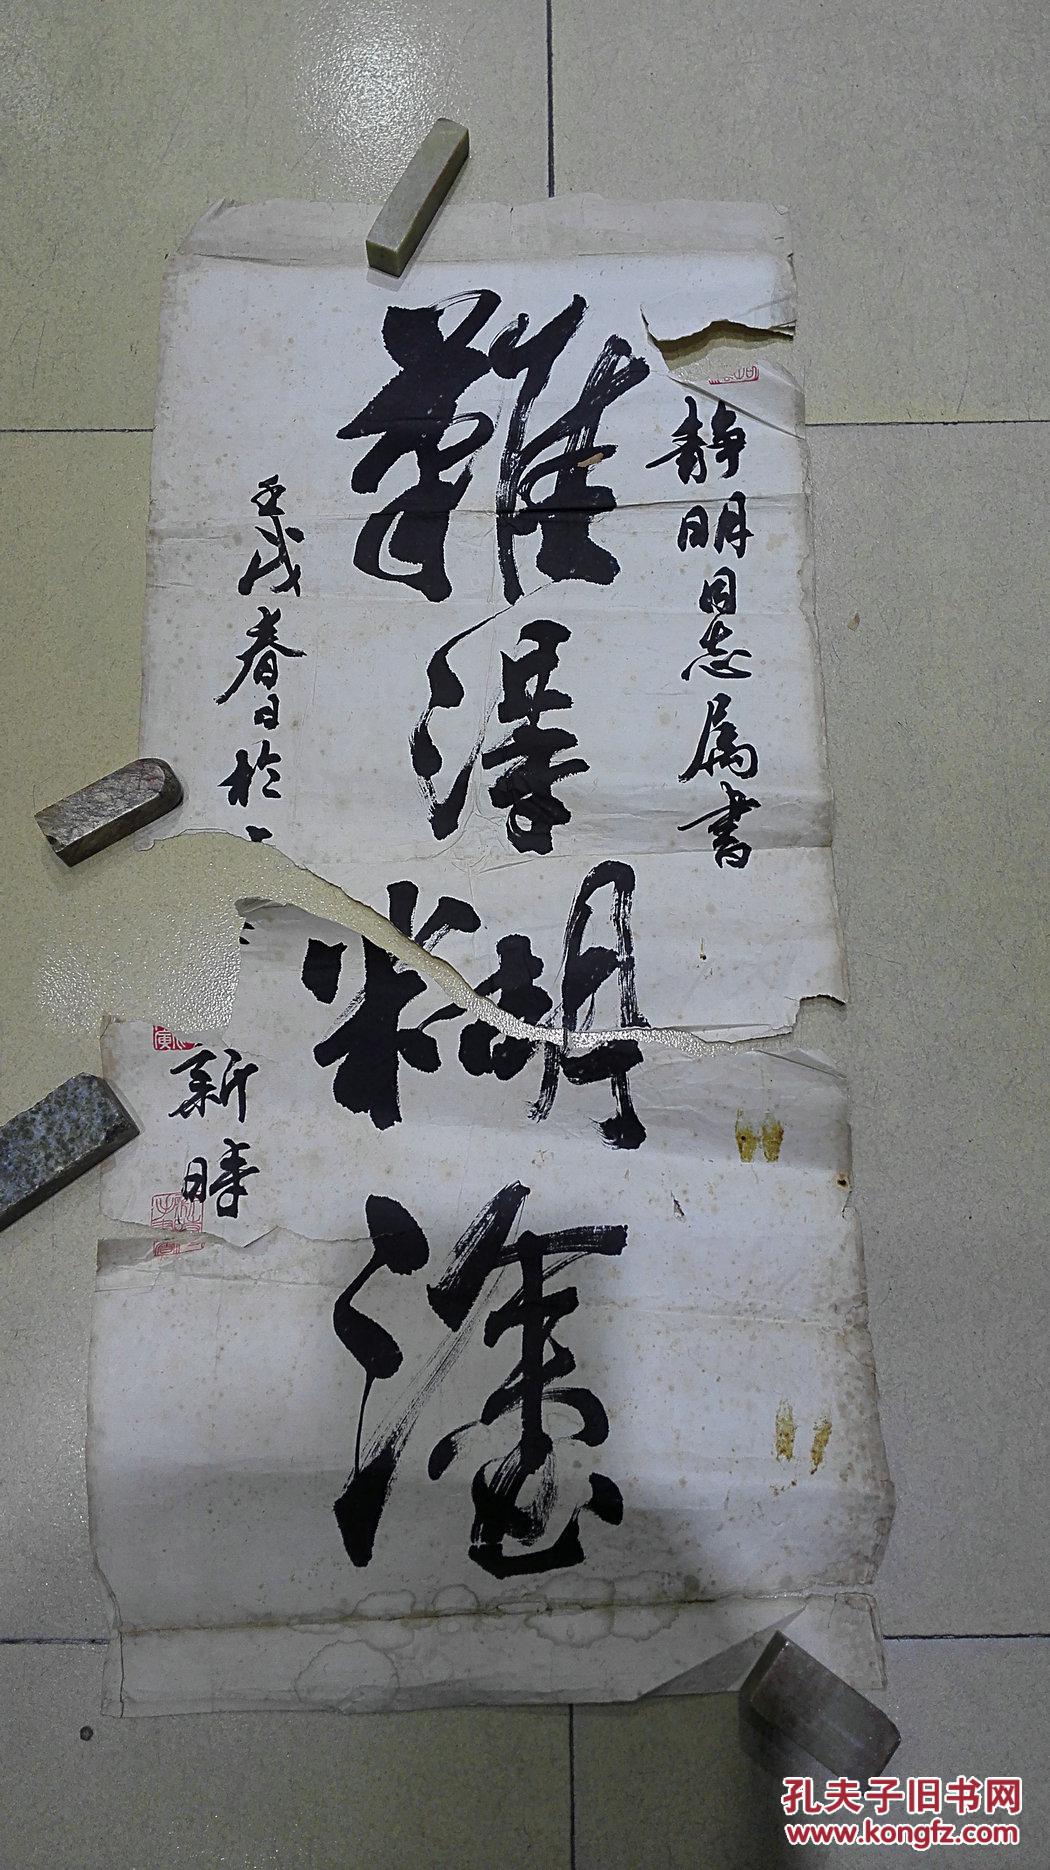 静明同志属书
難得糊塗
壬戌春日於
新時
孔夫子旧书网
www.kongfz.com